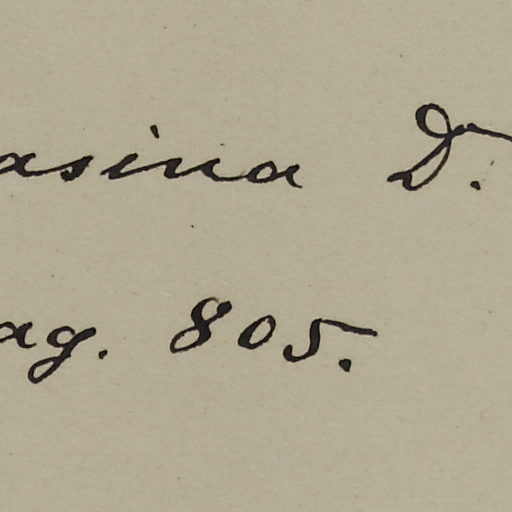 asina D.
ag. 805.